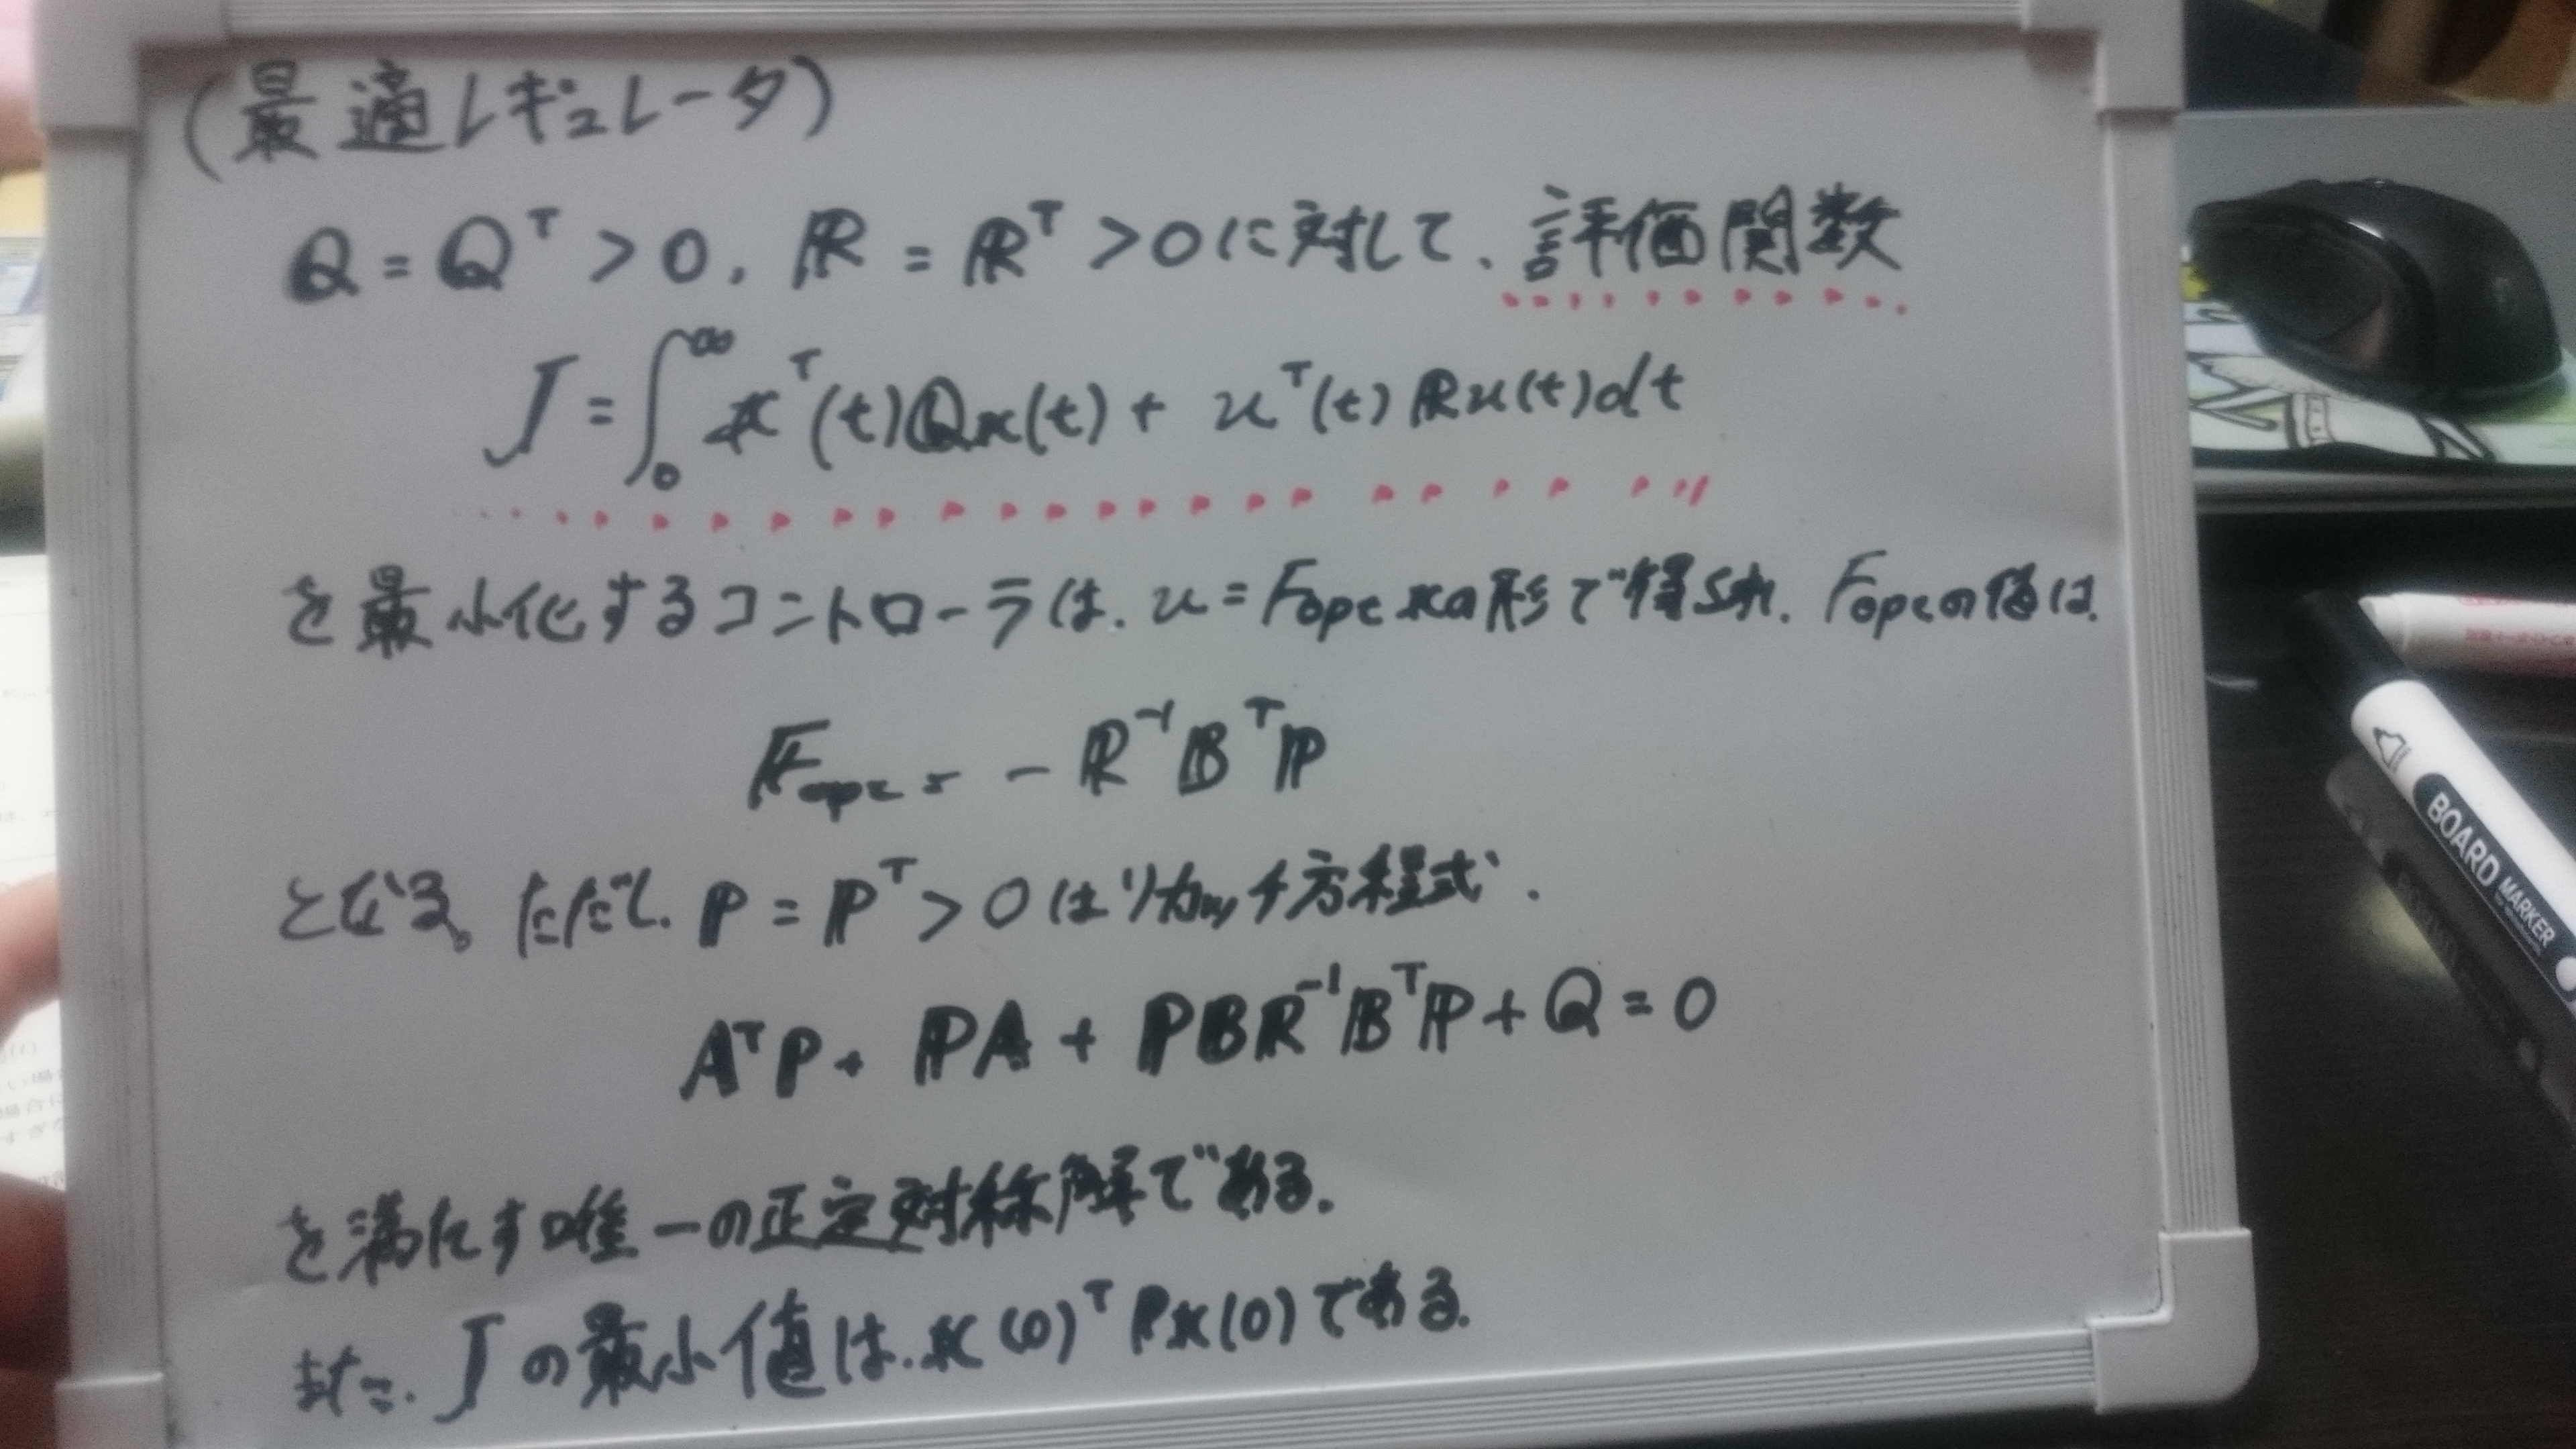 (最適レギュレータ)
Q = Q^T > 0, R = R^T > 0 に対して、評価関数
J = ∫_0^∞ x^T(t)Qx(t) + u^T(t)Ru(t)dt
を最小化するコントローラは、u = Fopt xの形で得られ、Foptの値は、
Fopt = - R^-1 B^T P
となる。ただし、P = P^T > 0 はリカッチ方程式、
A^T P + PA + PBR^-1 B^T P + Q = 0
を満たす唯一の正定対称解である。
また、Jの最小値は、x(0)^T Px(0)である。
BOARD MARKER